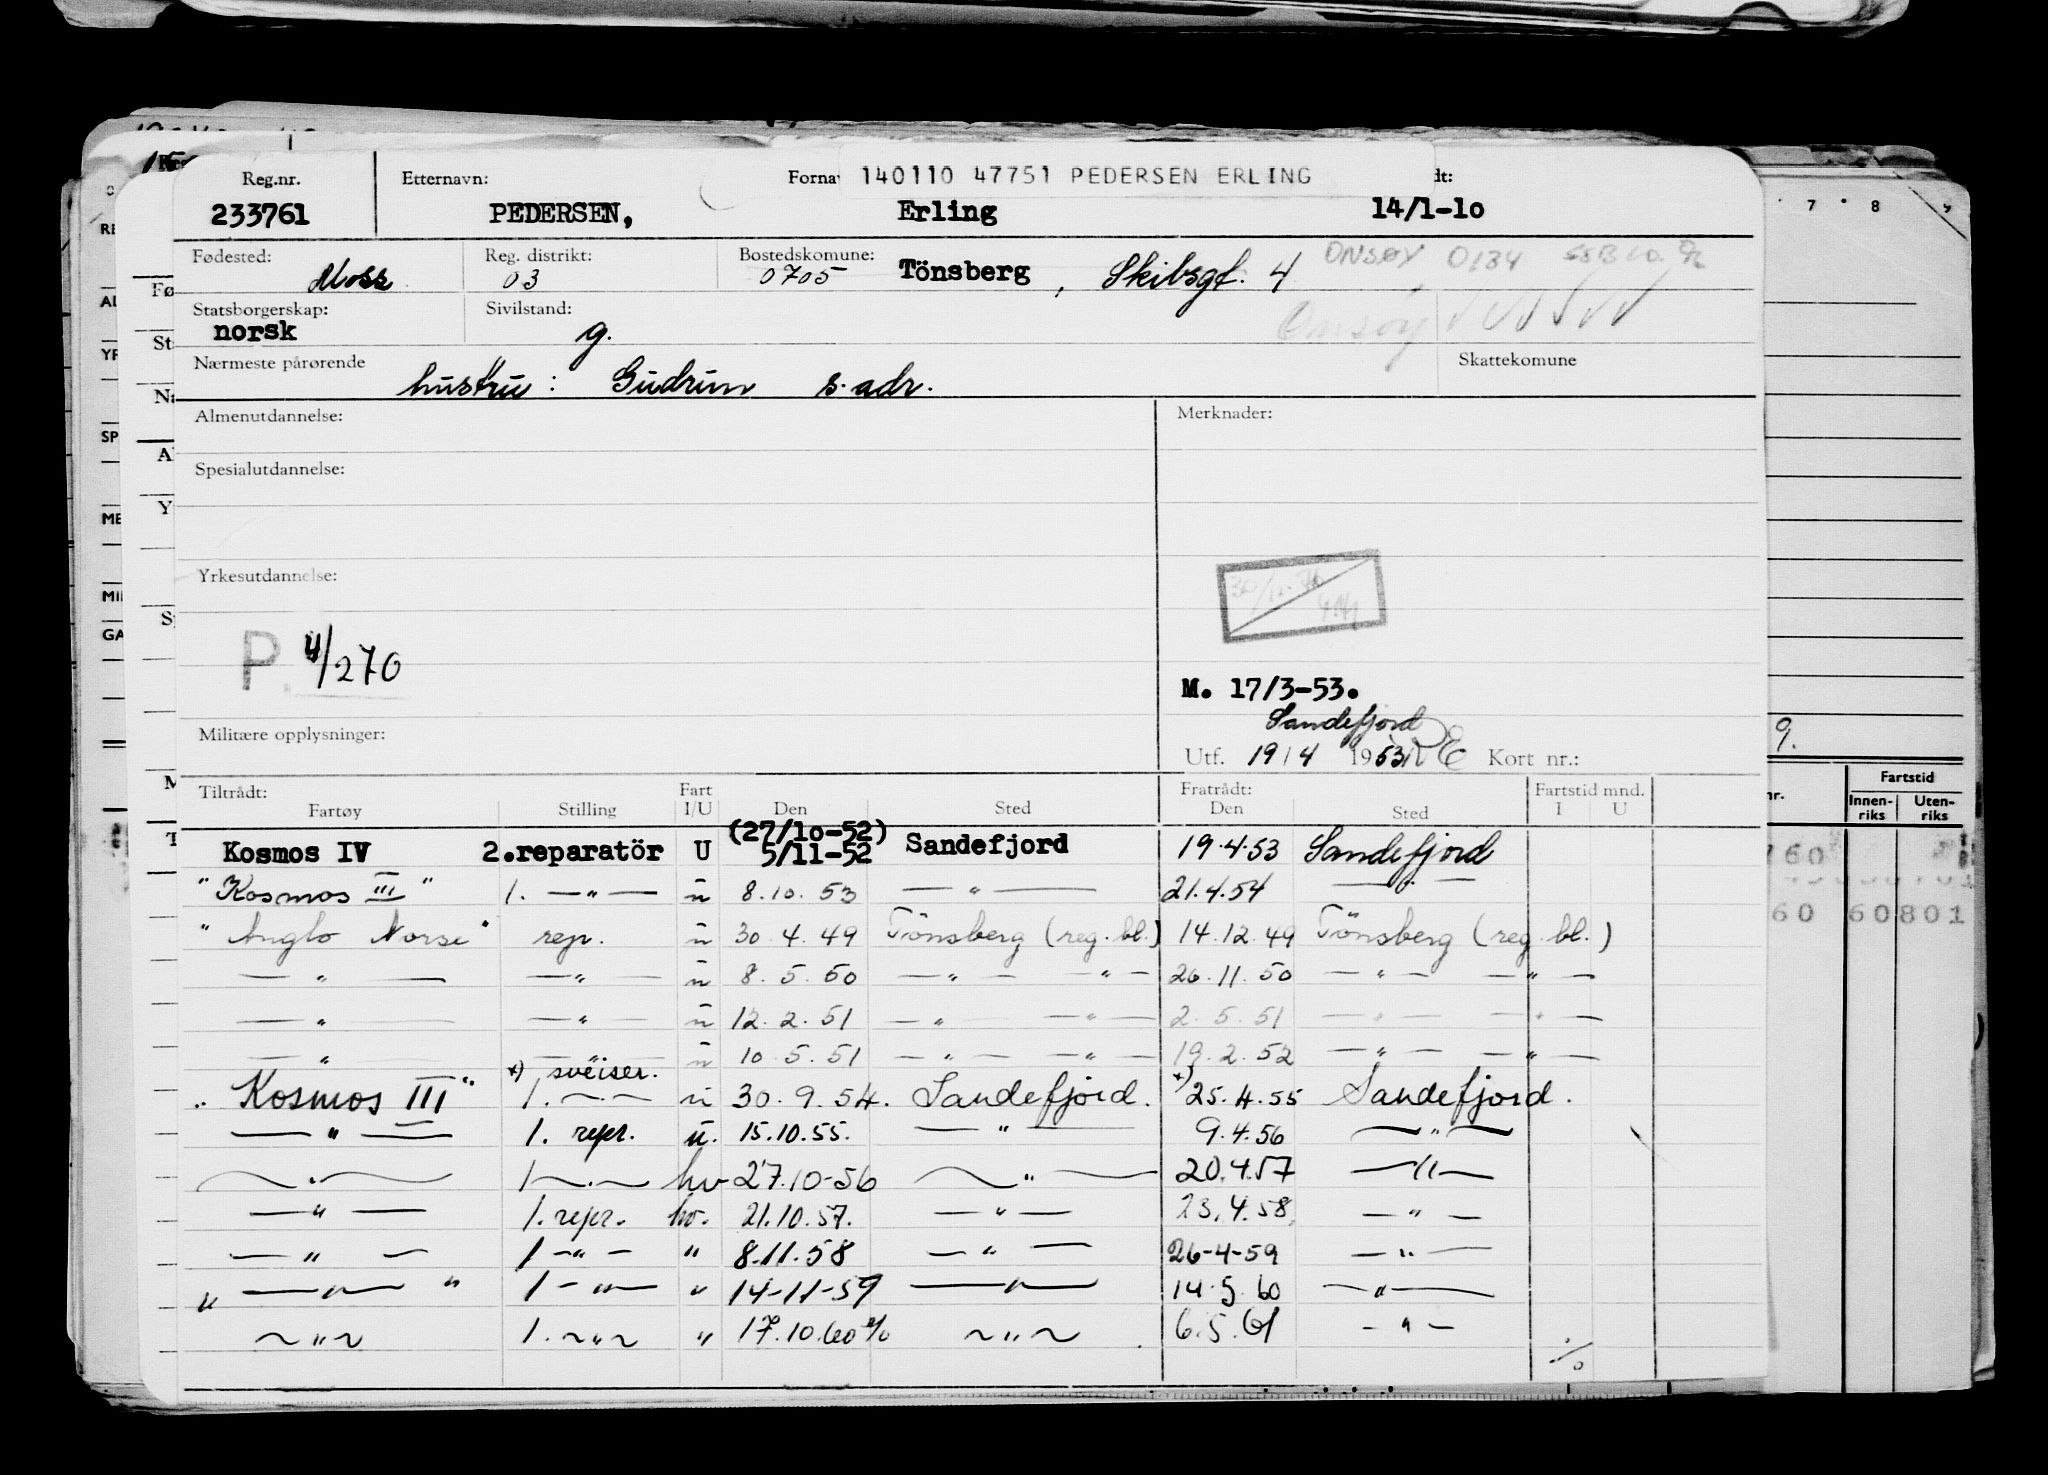 Reg.nr. Etternavn: Forna 140110 47751 PEDERSEN ERLING dt:
233761 PEDERSEN, Erling 14/1-10
Fødested: Reg. distrikt: Bostedskomune: ONSØY 0134
Moss 03 0705 Tönsberg, Skibsgt. 4
Statsborgerskap: Sivilstand: Onsøy
norsk g.
Nærmeste pårørende Skattekomune
hustru: Gudrun s. adr.
Almenutdannelse: Merknader:
Spesialutdannelse:
Yrkesutdannelse:
30/12-76
P. 4/270
M. 17/3-53.
Sandefjord
Militære opplysninger:
Utf. 19/4 1953 Kort nr.:
Tiltrådt: Fart Fratrådt: Fartstid mnd.
Fartøy Stilling I/U Den Sted Den Sted I U
(27/10-52)
Kosmos IV 2.reparatör U 5/11-52 Sandefjord 19.4.53 Sandefjord
"Kosmos III" 1. — " — u 8.10.53 — " — 21.4.54 — " —
"Anglo Norse" rep. u 30.4.49 Tönsberg (reg. bl.) 14.12.49 Tönsberg (reg. bl.)
— " — — " — u 8.5.50 — " — — " — 26.11.50 — " — — " —
— " — — " — u 12.2.51 — " — — " — 2.5.51 — " — — " —
— " — — " — u 10.5.51 — " — — " — 19.2.52 — " — — " —
x) sveiser. x)
"Kosmos III" 1. — " — u 30.9.54. Sandefjord. 25.4.55 Sandefjord.
— " — 1. repr. u. 15.10.55. — " — 9.4.56 — " —
— " — 1 — " — hv 27.10-56 — " — 20.4.57 — " —
— " — 1. repr. hv. 21.10.57. — " — 23.4.58, — " —
— " — 1 — " — " 8.11.58 — " — 26-4-59 — " —
" — " — " 1 — " — " 14-11-59 — " — 14.5.60 — " —
~ " ~ 1. ~ " ~ " 17.10.60 ~ " ~ 6.5.61 — " —
./.
7 8 9
9.
Fartstid
Innen-riks Uten-riks
nr.
760
60 60801